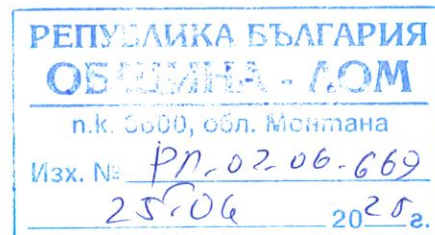 РЕПУБЛИКА БЪЛГАРИЯ
ОБЩИНА - ЛОМ
п.к. 3600, обл. Монтана
Изх. № РД-02-06-669
25.06 2025 г.